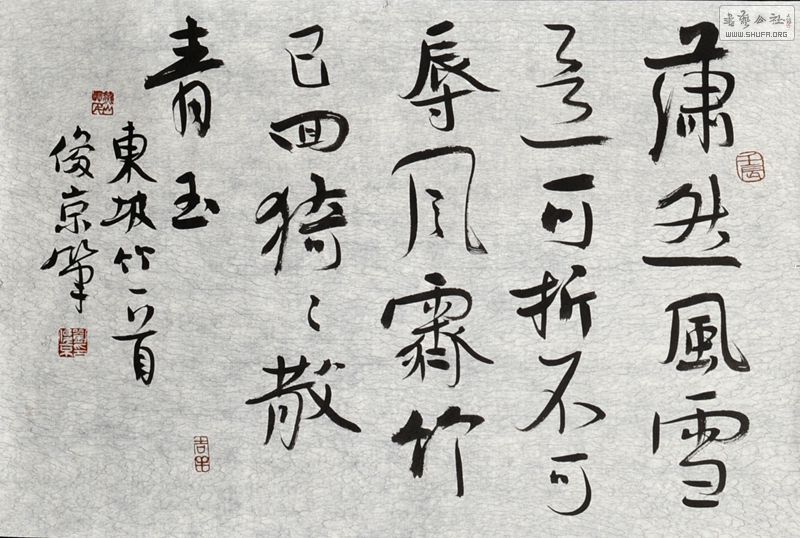 書藝公社
WWW.SHUFA.ORG
蕭然風雪
意可折不可
辱风霽竹
已回猗〻散
青玉
東坡竹一首
俊京筆